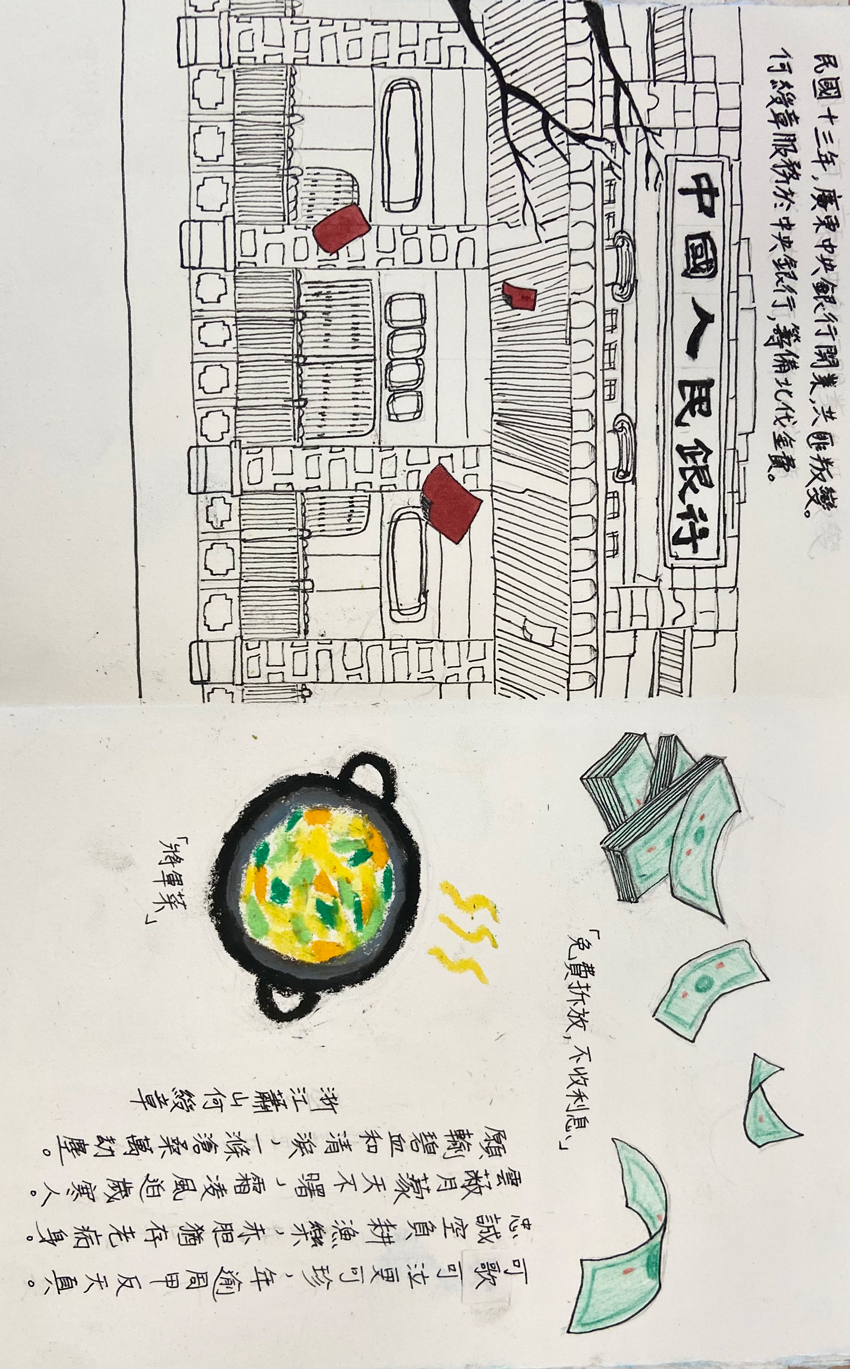 民國十三年,廣東中央銀行開業,共匪叛變。
何綬章服務於中央銀行,籌備北伐金費。
中國人民銀行
「免費拆放,不收利息」
「將軍菜」
可歌可泣更可珍,年逾周甲反天真。
忠誠空負耕漁樂,赤胆猶存老病身。
雲蔽月蒙天不曙,霜凌風迫歲寒人。
願輸碧血和清淚,一滌滄桑萬劫塵。
浙江蕭山何綬章